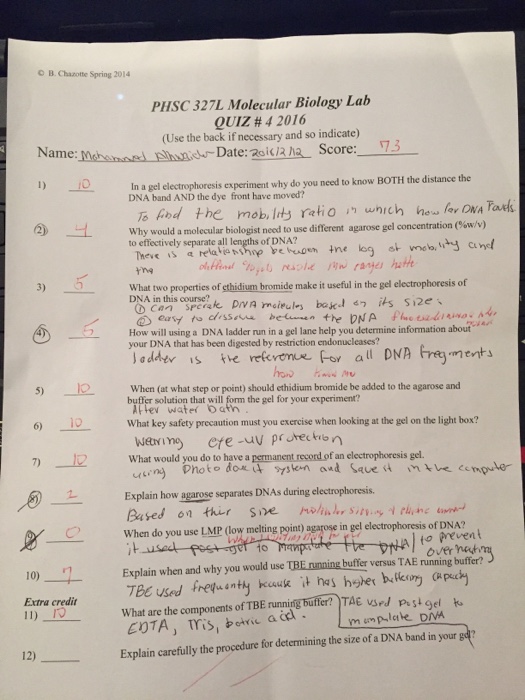 © B. Chazotte Spring 2014
PHSC 327L Molecular Biology Lab
QUIZ # 4 2016
(Use the back if necessary and so indicate)
Name: Mohammed Date: 2016/2/12 Score: 73
1) 10 In a gel electrophoresis experiment why do you need to know BOTH the distance the
DNA band AND the dye front have moved?
To find the mobility ratio in which how far DNA
2) 4 Why would a molecular biologist need to use different agarose gel concentration (%w/v)
to effectively separate all lengths of DNA?
There is a relationship between the log of mobility and
the different % gels resolve ranges
3) 5 What two properties of ethidium bromide make it useful in the gel electrophoresis of
DNA in this course?
① can DNA based on its size.
② easy to between the DNA
4) 5 How will using a DNA ladder run in a gel lane help you determine information about
your DNA that has been digested by restriction endonucleases?
ladder is the reference for all DNA fragments
5) 10 When (at what step or point) should ethidium bromide be added to the agarose and
buffer solution that will form the gel for your experiment?
After water bath.
6) 10 What key safety precaution must you exercise when looking at the gel on the light box?
wearing eye-UV protection
7) 10 What would you do to have a permanent record of an electrophoresis gel.
using photo doc it system and save it in the computer
8) 2 Explain how agarose separates DNAs during electrophoresis.
Based on their size
9) 0 When do you use LMP (low melting point) agarose in gel electrophoresis of DNA?
it used post gel to manpulate the DNA / to prevent
overheating
10) 7 Explain when and why you would use TBE running buffer versus TAE running buffer?
TBE used frequently because it has higher buffering capacity
Extra credit
11) 10 What are the components of TBE running buffer? TAE used post gel to
EDTA, Tris, boric acid. manpulate DNA
12) Explain carefully the procedure for determining the size of a DNA band in your gel?